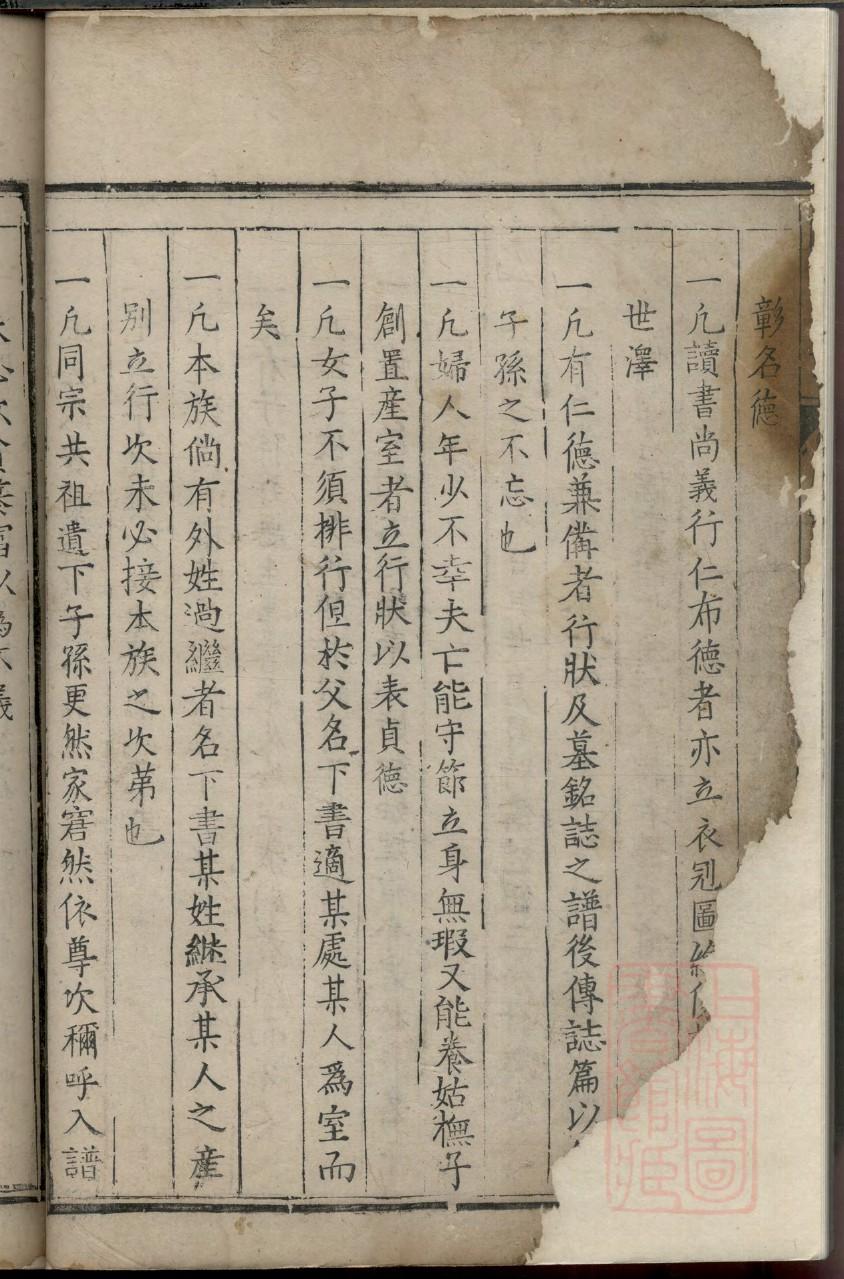 彰名德
一凡讀書尚義行仁布德者亦立衣冠圖
世澤
一凡有仁德兼備者行狀及墓銘誌之譜後傳誌篇以
子孫之不忘也
一凡婦人年少不幸夫亡能守節立身無瑕又能養姑撫子
創置産室者立行狀以表貞德
一凡女子不須排行但於父名下書適某處某人爲室而
矣
一凡本族倘有外姓過繼者名下書某姓継承某人之産
别立行次未必接本族之次苐也
一凡同宗共祖遺下子孫更然家窘然依尊次稱呼入譜
上海圖書館藏